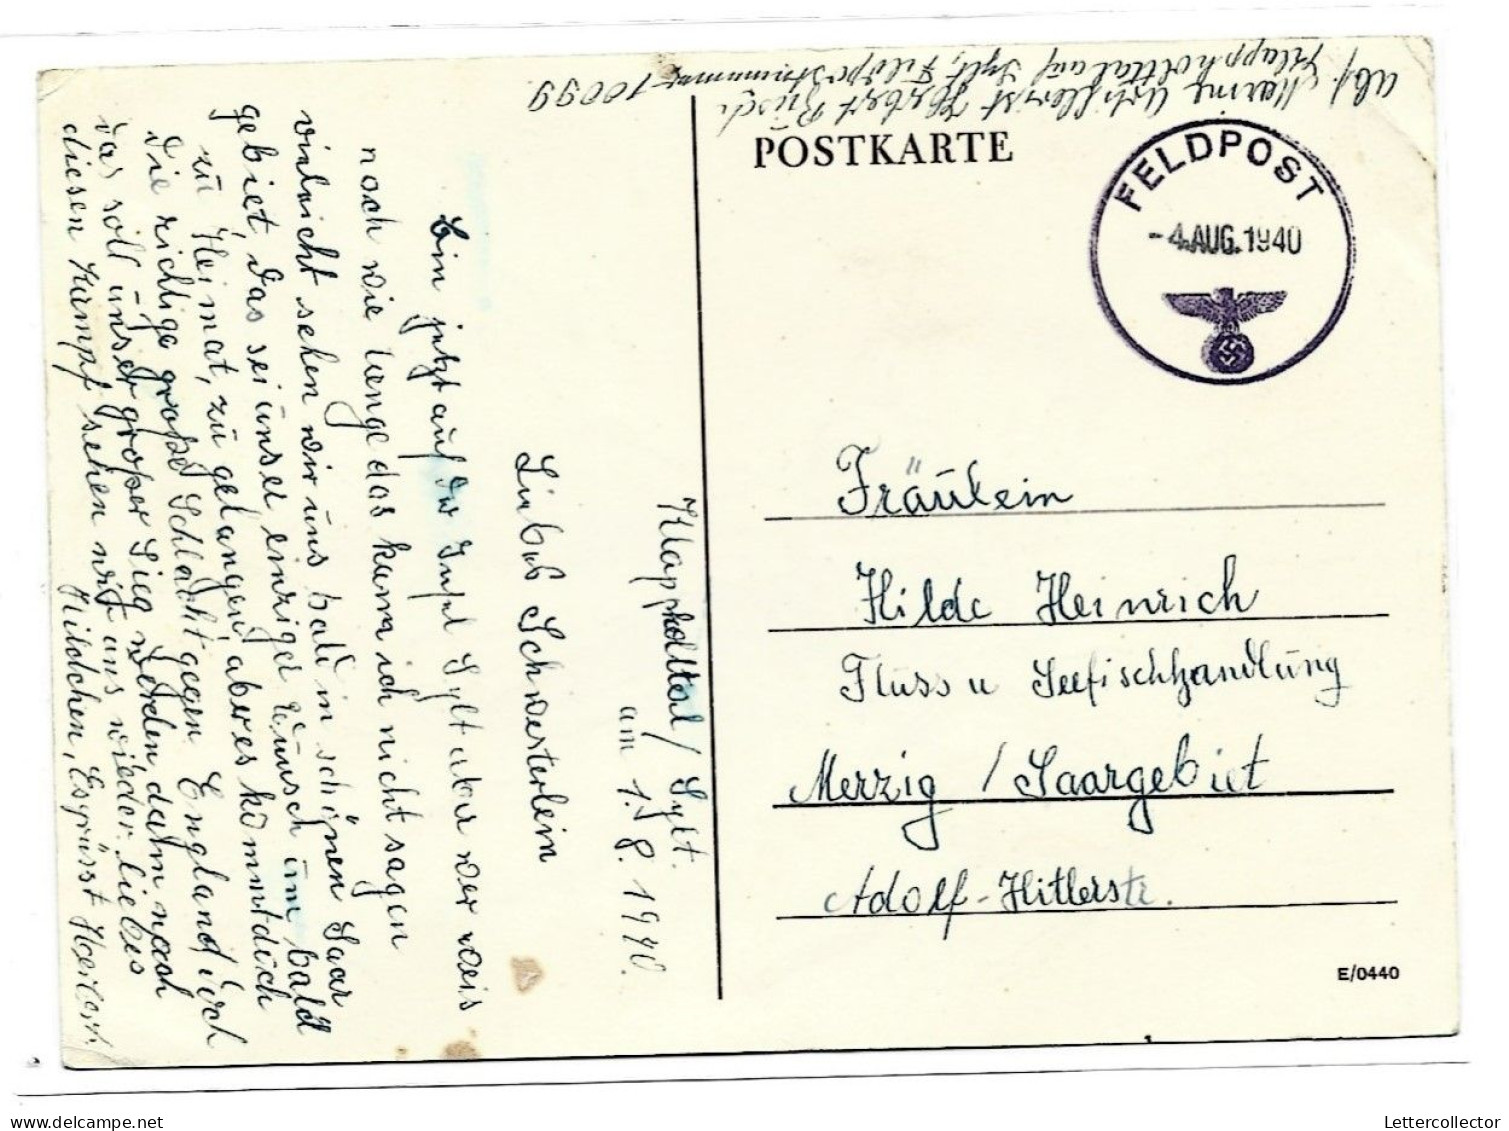 Abs. Marine Artillerist Herbert
Klappholttal auf Sylt, Feldpostnummer 10099
POSTKARTE
FELDPOST
-4.AUG.1940
Fräulein
Hilde Heinrich
Fluss u Seefischhandlung
Merzig / Saargebiet
Adolf-Hitlerstr.
E/0440
Klappholttal / Sylt.
am 1. 8. 1940.
Liebes Schwesterlein
Bin jetzt auf der Insel Sylt aber wer weis
noch wie lange das kann ich nicht sagen
vieleicht sehen wir uns bald in schönen Saar
gebiet, das sei unser einziger Wunsch um bald
zu Heimat, zu gelangen aber es kommt doch
die richtige große Schlacht gegen England durch
das soll unser großer Sieg werden dann nach
diesen Kampf sehen wir uns wieder liebes
Hildchen, Es grüsst Herbert
Lettercollector